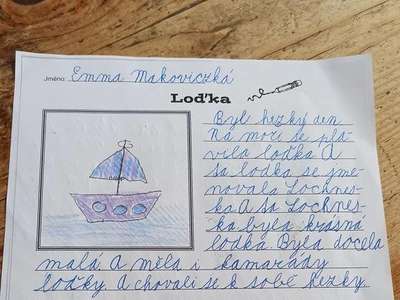 Jméno: Emma Makoviczká
Loďka
Byl hezký den
Na moři se pla-
vila loďka A
ta loďka se jme-
novala Lochnes-
ka. A ta Lochnes-
ka byla krásná
loďká. Byla docela
malá. A měla i kamarády
loďky. A chovali se k sobě hezky.